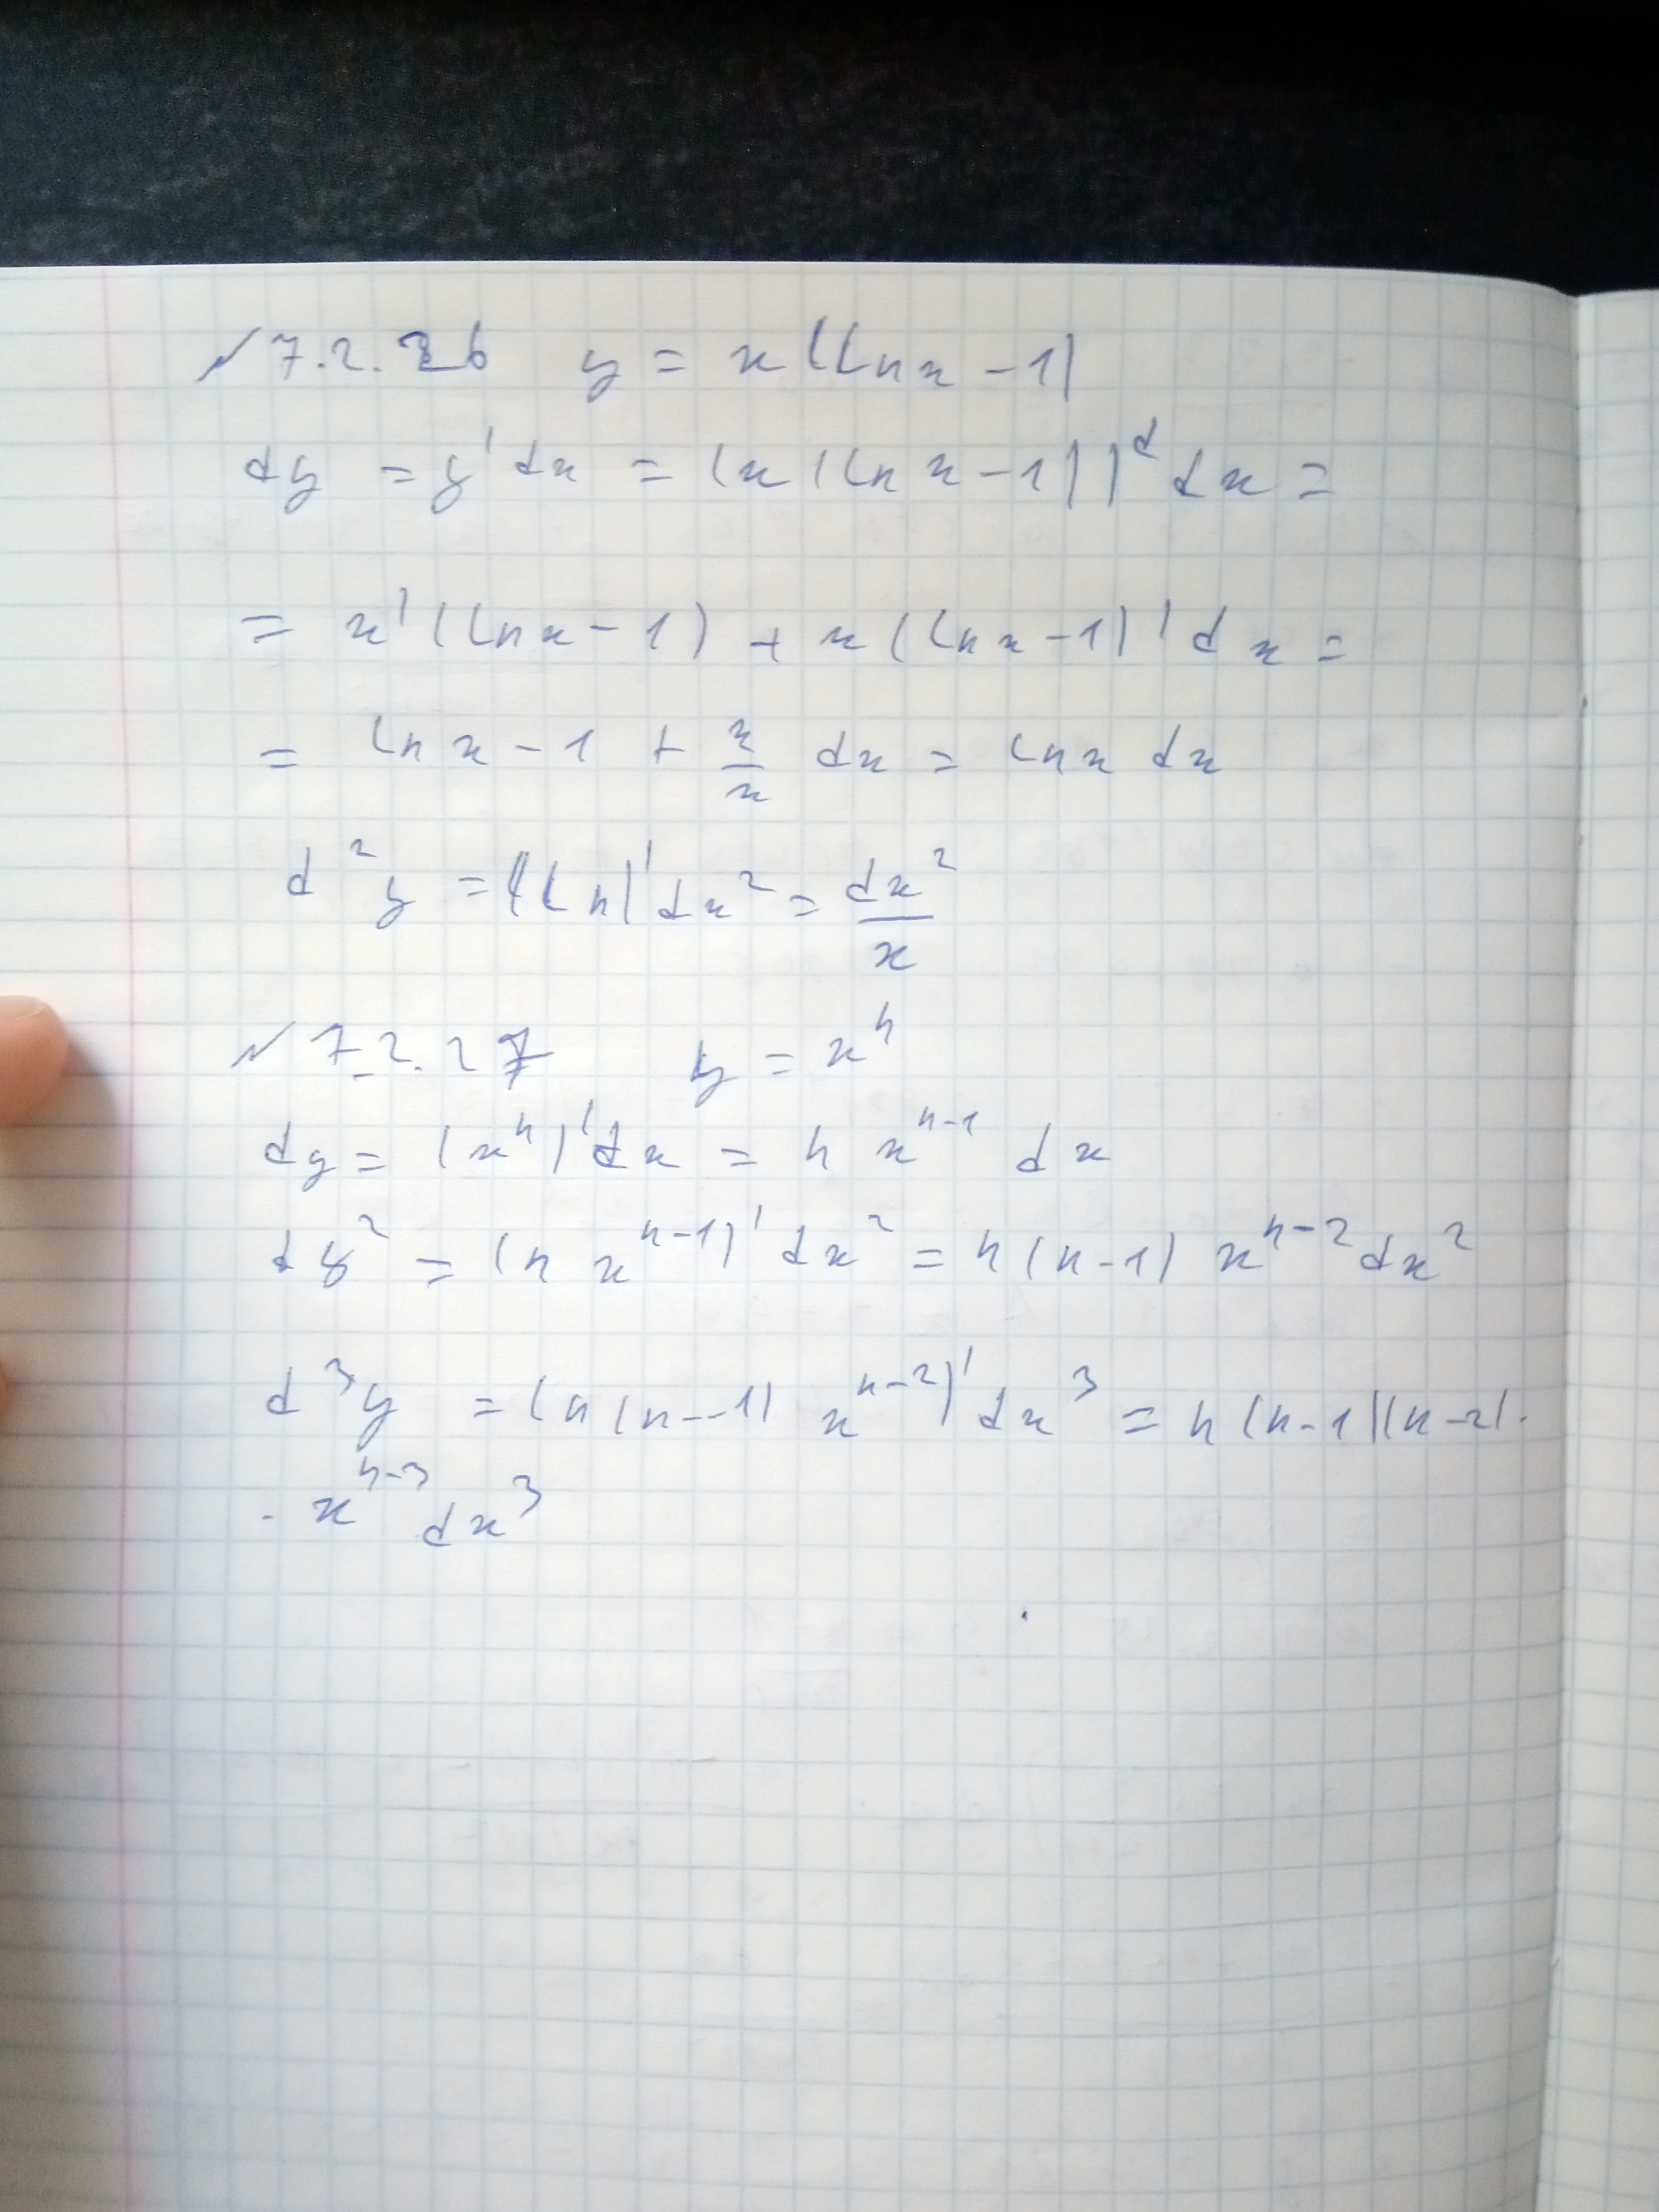 № 7.2.26 y = x(ln x - 1)
dy = y' dx = (x(ln x - 1))' dx =
= x'(ln x - 1) + x(ln x - 1)' dx =
= ln x - 1 + x/x dx = ln x dx
d²y = (ln)' dx² = dx²/x
№ 7.2.27 y = xⁿ
dy = (xⁿ)' dx = n xⁿ⁻¹ dx
dy² = (n xⁿ⁻¹)' dx² = n(n-1) xⁿ⁻² dx²
d³y = (n(n-1) xⁿ⁻²)' dx³ = n(n-1)(n-2) ·
· xⁿ⁻³ dx³